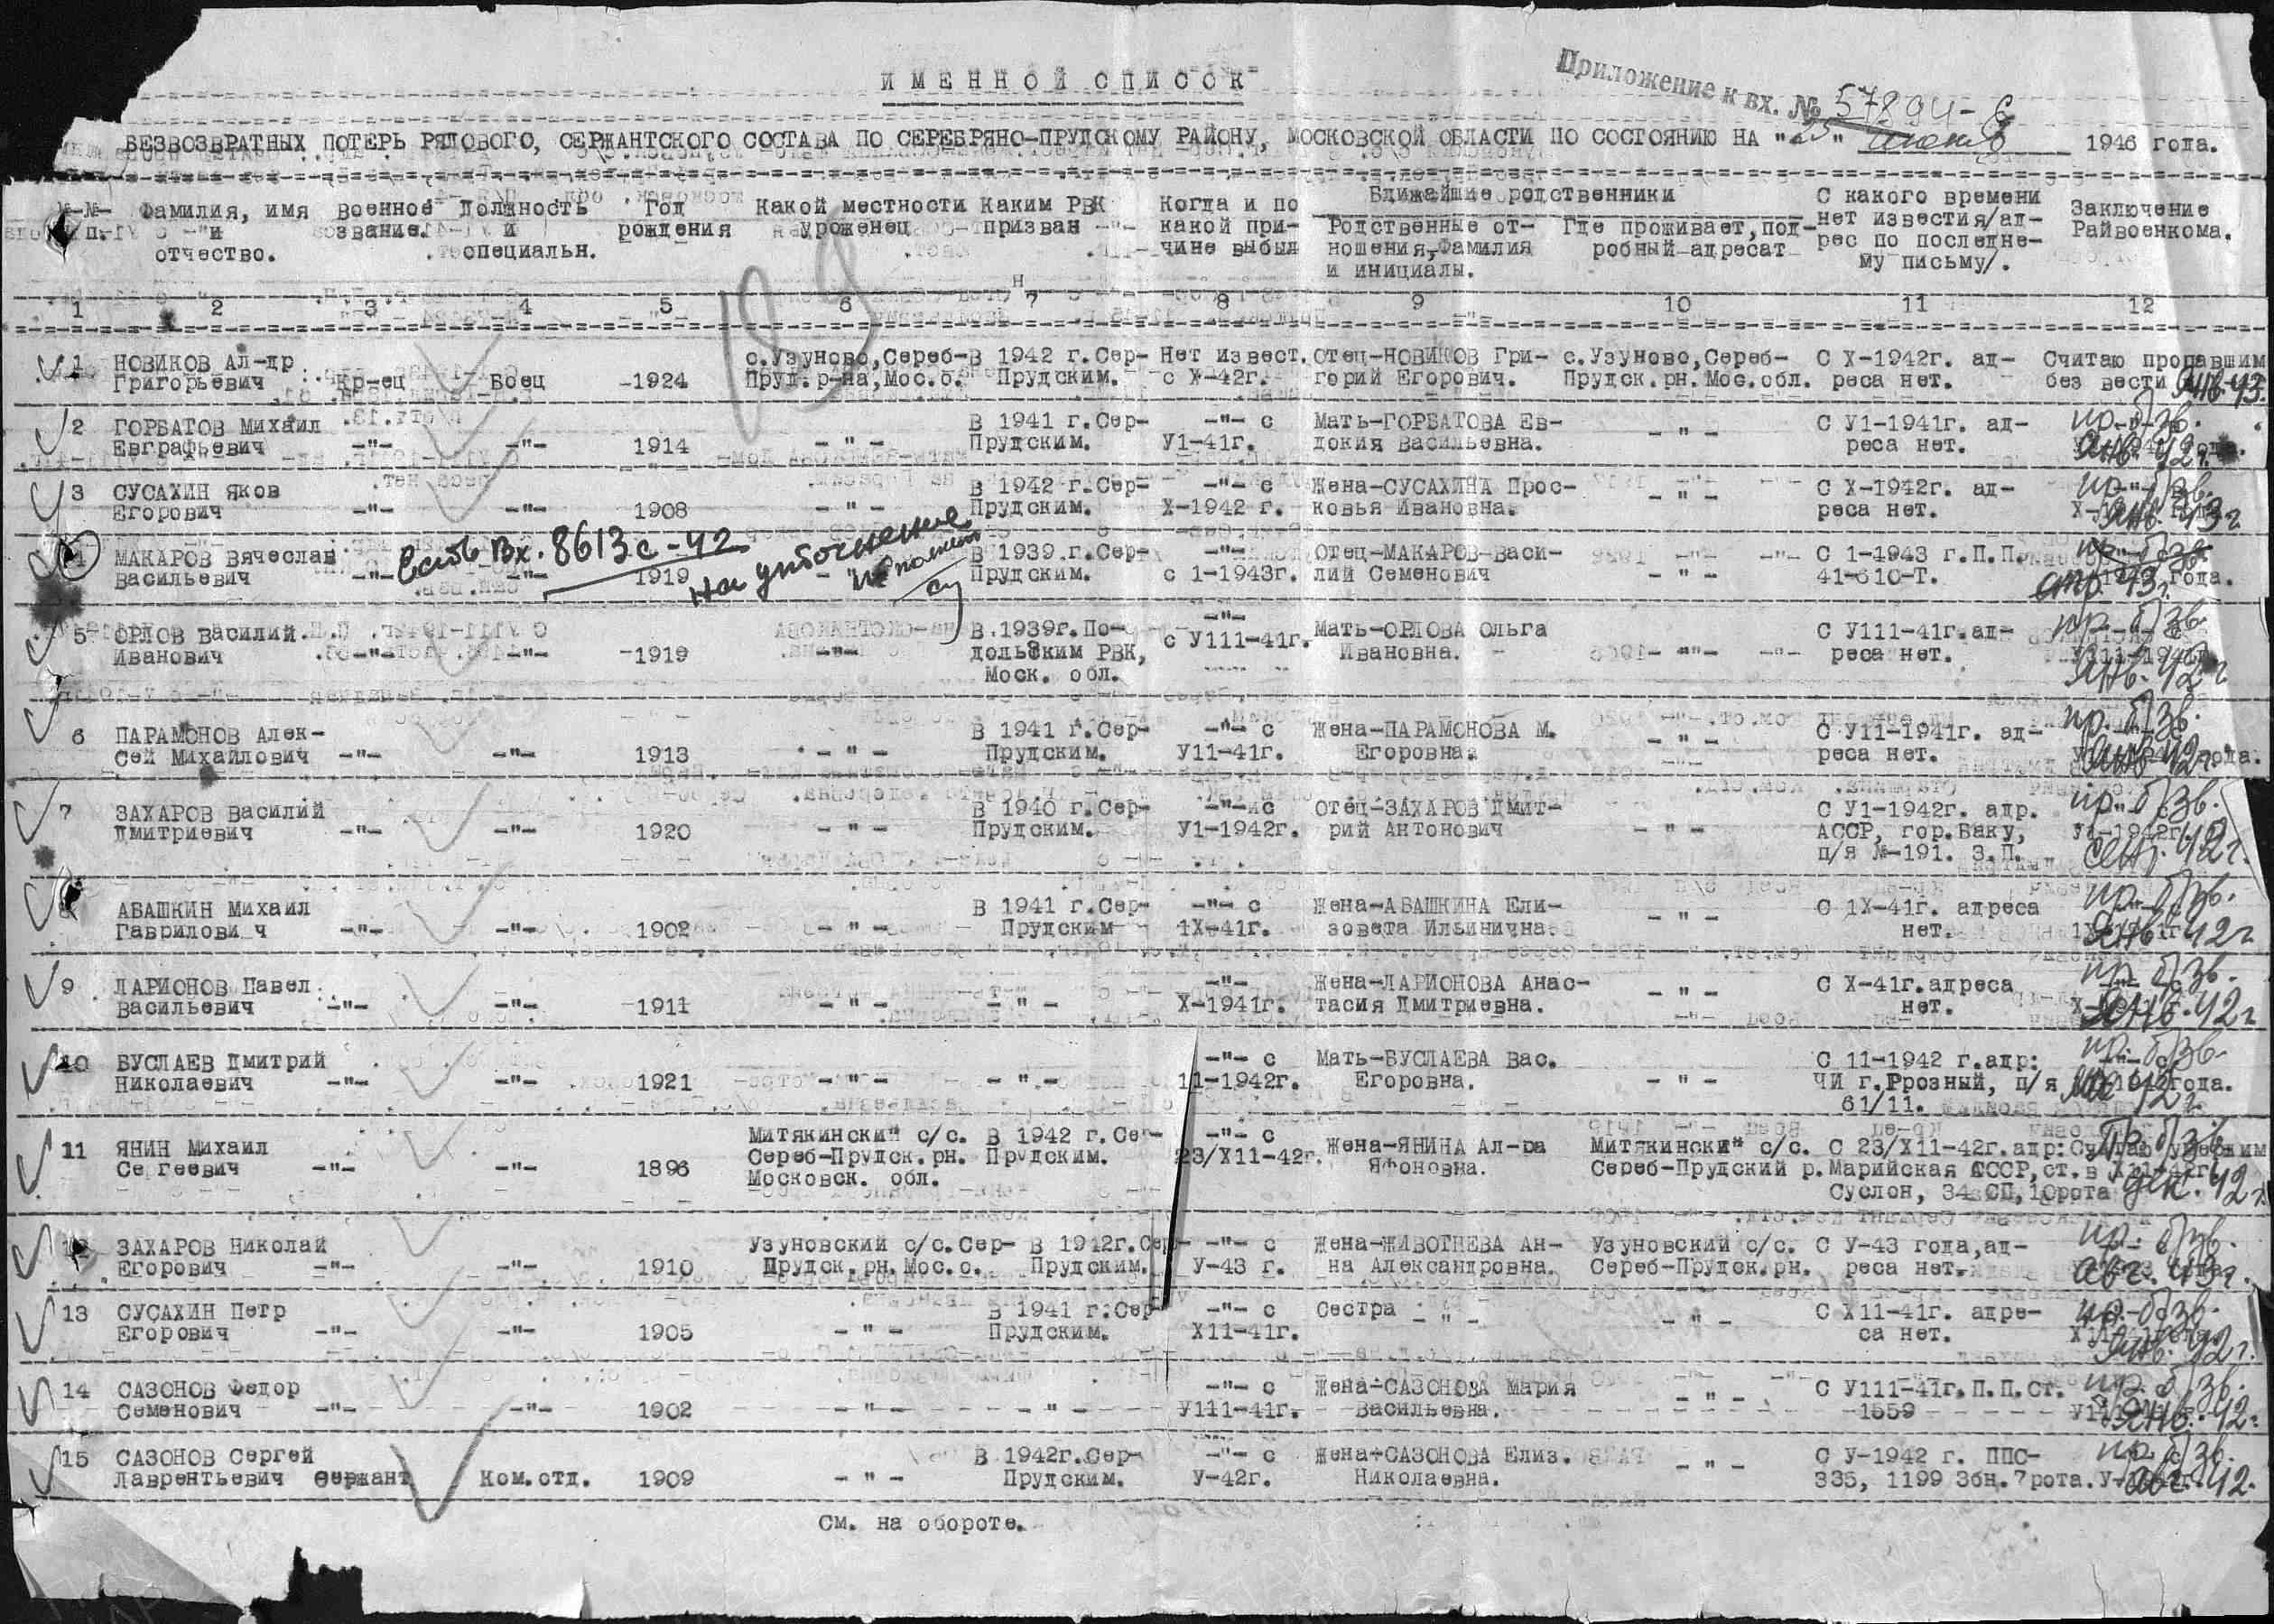 ИМЕННОЙ СПИСОК
Приложение к вх. № 57894-с
БЕЗВОЗВРАТНЫХ ПОТЕРЬ РЯДОВОГО, СЕРЖАНТСКОГО СОСТАВА ПО СЕРЕБРЯНО-ПРУДСКОМУ РАЙОНУ, МОСКОВСКОЙ ОБЛАСТИ ПО СОСТОЯНИЮ НА "25" 1946 года.
№-№- п. Фамилия, имя и отчество. Военное звание. Должность и специальн. Год рождения Какой местности уроженец Каким РВК призван Когда и по какой при- чине выбыл Ближайшие родственники Родственные от- ношения, Фамилия и инициалы. Где проживает, под- робный адресат С какого времени нет известия/ад- рес по последне- му письму/. Заключение Райвоенкома.
1 2 3 4 5 6 7 8 9 10 11 12
1 НОВИКОВ Ал-др с.Узуново, Сереб- В 1942 г. Сер- Нет извест. Отец-НОВИКОВ Гри- с.Узуново, Сереб- С X-1942г. ад- Считаю пропавшим
Григорьевич Кр-ец Боец -1924 Пруд. р-на, Мос.о. Прудским. с X-42г. горий Егорович. Прудск. рн. Мос.обл. реса нет. без вести янв. 43.
2 ГОРБАТОВ Михаил В 1941 г. Сер- -"- с Мать-ГОРБАТОВА Ев- С У1-1941г. ад- пр. б/зв.
Евграфьевич -"- -"- 1914 - " - Прудским. У1-41г. докия Васильевна. - " - реса нет. янв. 42г.
3 СУСАХИН Яков В 1942 г. Сер- -"- с Жена-СУСАХИНА Прос- С X-1942г. ад- пр. б/зв.
Егорович -"- -"- 1908 - " - Прудским. X-1942 г. ковья Ивановна. - " - реса нет. янв. 43г
Есть Вх. 8613с-42 на уточнение
4 МАКАРОВ Вячеслав В 1939 г. Сер- -"- Отец-МАКАРОВ Васи- С 1-1943 г. П.П. пр. б/зв.
Васильевич -"- -"- 1919 - " Прудским. с 1-1943г. лий Семенович - " - 41-610-Т. года.
5 ОРЛОВ Василий В 1939г. По- -"- Мать-ОРЛОВА Ольга С У111-41г. ад- пр. б/зв.
Иванович -"- -"- -1919 -"- дольским РВК, с У111-41г. Ивановна. - "- реса нет. У111-1941г
Моск. обл. янв. 42г
6 ПАРАМОНОВ Алек- В 1941 г. Сер- -"- с Жена-ПАРАМОНОВА М. С У11-1941г. ад- пр. б/зв.
Сей Михайлович -"- -"- 1913 - " - Прудским. У11-41г. Егоровна. - " - реса нет. янв. 42г. года.
7 ЗАХАРОВ Василий В 1940 г. Сер- -"- с Отец-ЗАХАРОВ Дмит- С У1-1942г. адр. пр. б/зв.
Дмитриевич -"- -"- 1920 - " - Прудским. У1-1942г. рий Антонович - " - АССР, гор.Баку, У1-1942г.
п/я №-191. З.П. сент. 42г.
8 АБАШКИН Михаил В 1941 г. Сер- -"- с Жена-АБАШКИНА Ели- С 1X-41г. адреса пр. б/зв.
Гаврилович -"- -"- 1902 - " - Прудским 1X-41г. зовета Ильинична - " - нет. янв. 42г
9 ЛАРИОНОВ Павел -"- Жена-ЛАРИОНОВА Анас- С X-41г. адреса пр. б/зв.
Васильевич -"- -"- 1911 - " - - " - X-1941г. тасия Дмитриевна. - " - нет. янв. 42г
10 БУСЛАЕВ Дмитрий -"- с Мать-БУСЛАЕВА Вас. С 11-1942 г. адр: пр. б/зв.
Николаевич -"- -"- 1921 - " - - " - 11-1942г. Егоровна. - " - ЧИ г.Ррозный, п/я 1942года.
61/11. 42г.
11 ЯНИН Михаил Митякинский с/с. В 1942 г. Сер- -"- с Жена-ЯНИНА Ал-ра Митякинский с/с. С 23/X11-42г. адр: Считаю умершим
Сергеевич -"- -"- 1896 Сереб-Прудск. рн. Прудским. 23/X11-42г. Яфоновна. Сереб-Прудский р. Марийская АССР, ст. в X11-42г
Московск. обл. Суслон, 34 СП, 10рота дек. 42г.
12 ЗАХАРОВ Николай Узуновский с/с. Сер- В 1942г. Сер- -"- с Жена-ЖИВОТНЕВА Ан- Узуновский с/с. С У-43 года, ад- пр. б/зв.
Егорович -"- -"- 1910 Прудск. рн. Мос.о. Прудским. У-43 г. на Александровна. Сереб-Прудск. рн. реса нет. авг. 43г.
13 СУСАХИН Петр В 1941 г. Сер- -"- с Сестра - " - С X11-41г. адре- пр. б/зв.
Егорович -"- -"- 1905 - " - Прудским. X11-41г. - " - са нет. янв. 42г.
14 САЗОНОВ Федор -"- с Жена-САЗОНОВА Мария С У111-41г. П.П.Ст. пр. б/зв.
Семенович -"- -"- 1902 - " - - " - У111-41г. Васильевна. - " - 1559 янв. 42.
15 САЗОНОВ Сергей В 1942г. Сер- -"- с Жена-САЗОНОВА Елиз. С У-1942 г. ППС- пр. б/зв.
Лаврентьевич Сержант Ком.отд. 1909 - " - Прудским. У-42г. Николаевна. - " - 335, 1199 3бн. 7рота. авг. 42.
См. на обороте.